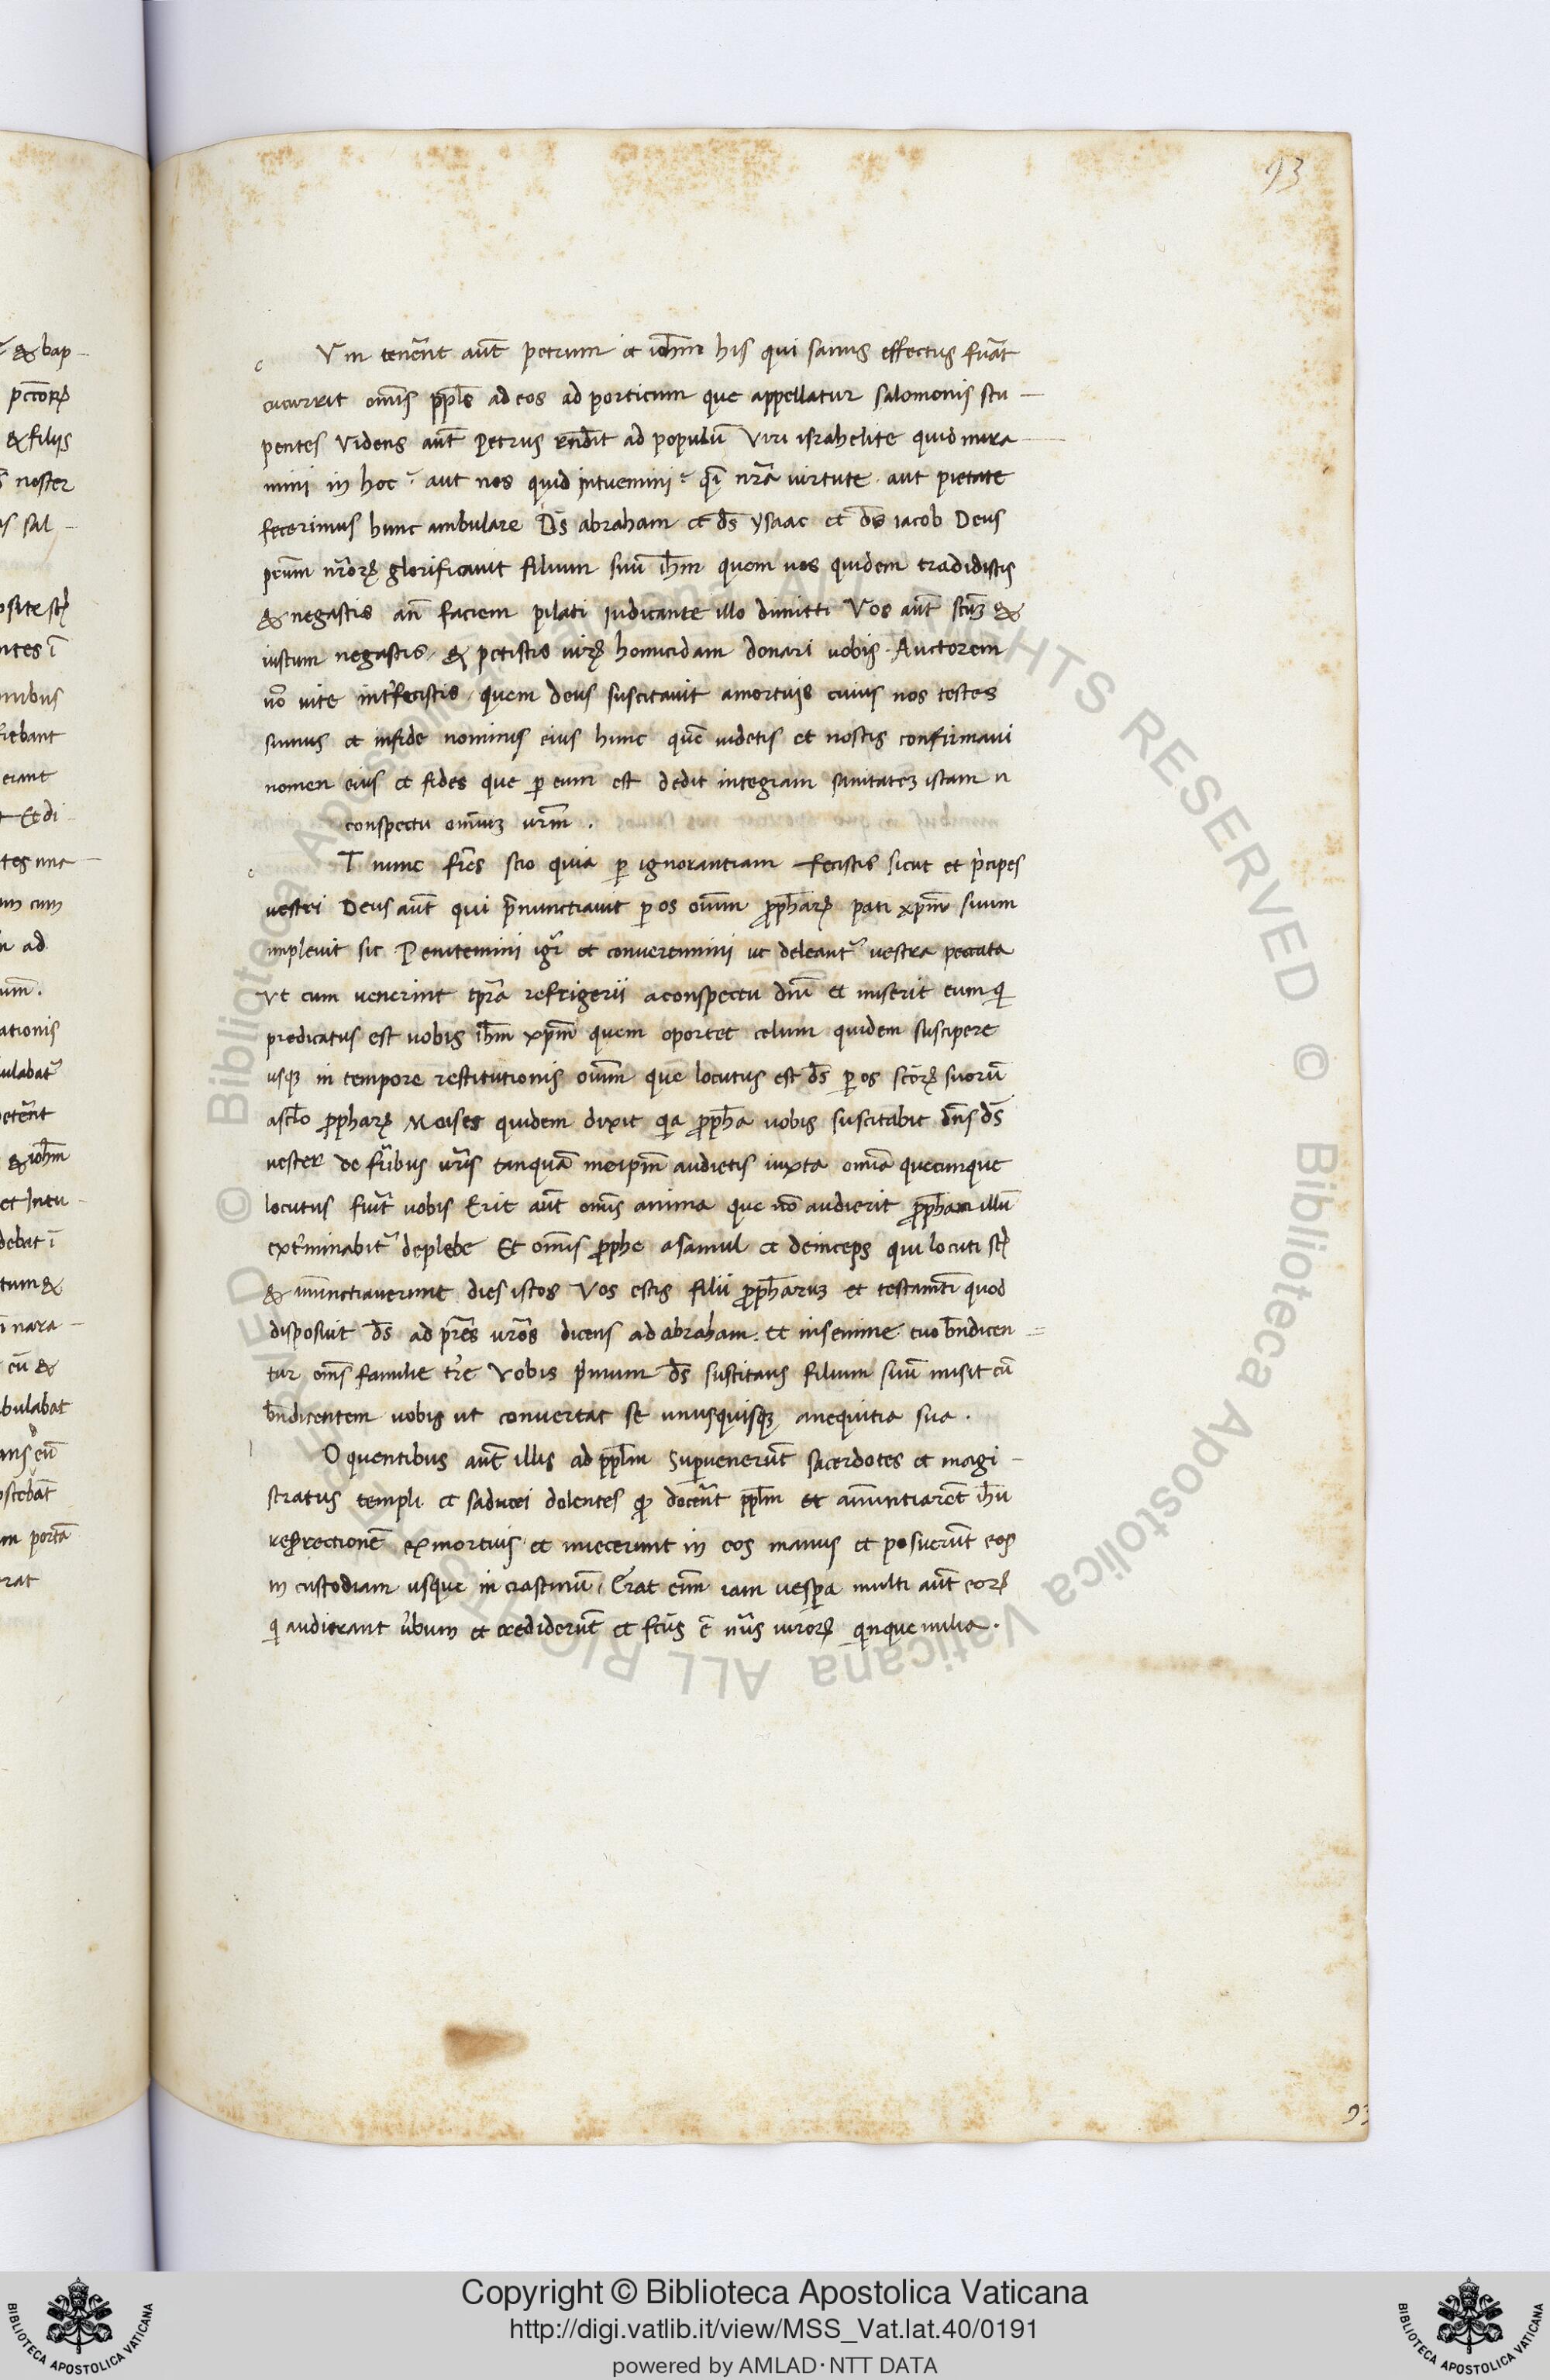 93
c Vm tenẽrnt aũt petrum et ioh̃m his qui sanus effectus fu̇at
cucurrit om̃is ppl̃s ad eos ad porticum que appellatur salomonis stu
pentes Videns aũt Petrus rñdit ad populũ Viri israhelite quid mira
mini in hoc? aut nos quid intuemini? q̃i nr̃a uirtute aut pietate
fecerimus hunc ambulare D̃s abraham et d̃s ysaac et d̃s iacob Deus
pr̃um nr̃orꝝ glorificauit filium suũ ih̃m quem uos quidem tradidistis
& negastis añ faciem pilati iudicante illo dimitti Vos aũt sc̃m &
iustum negastis & petistis uirꝝ homicidam donari uobis. Auctorem
uõ uite int̃fecistis quem deus suscitauit amortuis cuius nos testes
sumus et infide nominis eius hunc quẽ uidetis et nostis confirmaui
nomen eius et fides que ꝑ eum est dedit integram sanitateʒ istam n
conspectu omniuʒ ur̃m.
e T nunc fr̃es scio quia ꝑ ignorantiam fecistis sicut et p̃cipes
vestri Deus aũt qui p̃nunctiauit ꝑ os om̃um ꝓph̃arꝝ pati xp̃m suum
impleuit sic Penitemini igr̃ et conuertemini ut deleant᷑ vestra peccata
Vt cum uenerint tp̃ra refrigerii aconspectu dñi et miserit eum qi
predicatus est uobis ih̃m xp̃m quem oportet celum quidem suscipere
usqʒ in tempore restitutionis om̃um que locutus est d̃s ꝑ os sc̃orꝝ suorũ
asc̃lo ꝓpharꝝ Moises quidem dixit qia ꝓph̃a uobis suscitabit dñs d̃s
uester de fr̃ibus ur̃is tanquã meip̃m audietis iuxta om̃ia quecunque
locutus fuit̃ uobis Erit aũt om̃s anima que nõ audierit ꝓph̃am illũ
ext̃minabit᷑ deplebe Et om̃s ꝓphe a samul et deinceps qui locuti st̃
& annunctiauerunt dies istos Vos estis filii ꝓph̃aruʒ et testam̃ti quod
disposuit d̃s ad pr̃es ur̃os dicens ad abraham. et insemine tuo bñdicen
tur om̃s familie tr̃e Vobis p̃mum d̃s suscitans filium suũ misit eũ
bñdicentem uobis ut conuertat se unusquisqʒ anequitia sua.
l O quentibus aũt illis ad ppl̃m Supuenerũt sacerdotes et magi
stratus templi et saducei dolentes ꝙ docer̃ẽt ppl̃m et annuntiarẽt ih̃u
resurrectionẽ exmortuis et iniecerunt in eos manus et posuerũt eos
in custodiam usque in crastinũ. Erat eñm iam uespera multi aũt eorꝝ
qi audierant ũbum et crediderũt et fc̃us ẽ nũs uirorꝝ qinque milia.
93
Copyright © Biblioteca Apostolica Vaticana
http://digi.vatlib.it/view/MSS_Vat.lat.40/0191
powered by AMLAD·NTT DATA
BIBLIOTECA APOSTOLICA VATICANA
BIBLIOTECA APOSTOLICA VATICANA